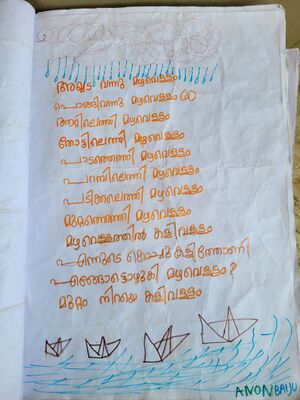 അയ്യട വന്നു മഴവെള്ളം
പൊങ്ങിവന്നു മഴവെള്ളം (2)
ആറ്റിലെത്തി മഴവെള്ളം
തോട്ടിലെത്തി മഴവെള്ളം
പാടത്തെത്തി മഴവെള്ളം
പറമ്പിലെത്തി മഴവെള്ളം
പടിക്കലെത്തി മഴവെള്ളം
മുറ്റത്തെത്തി മഴവെള്ളം
മഴവെള്ളത്തിൽ കളിവള്ളം
എന്നുടെ കൊച്ചു കളിത്തോണി
എങ്ങോട്ടൊഴുകി മഴവെള്ളം?
മുറ്റം നിറയെ കളിവള്ളം
ANON BAIJU